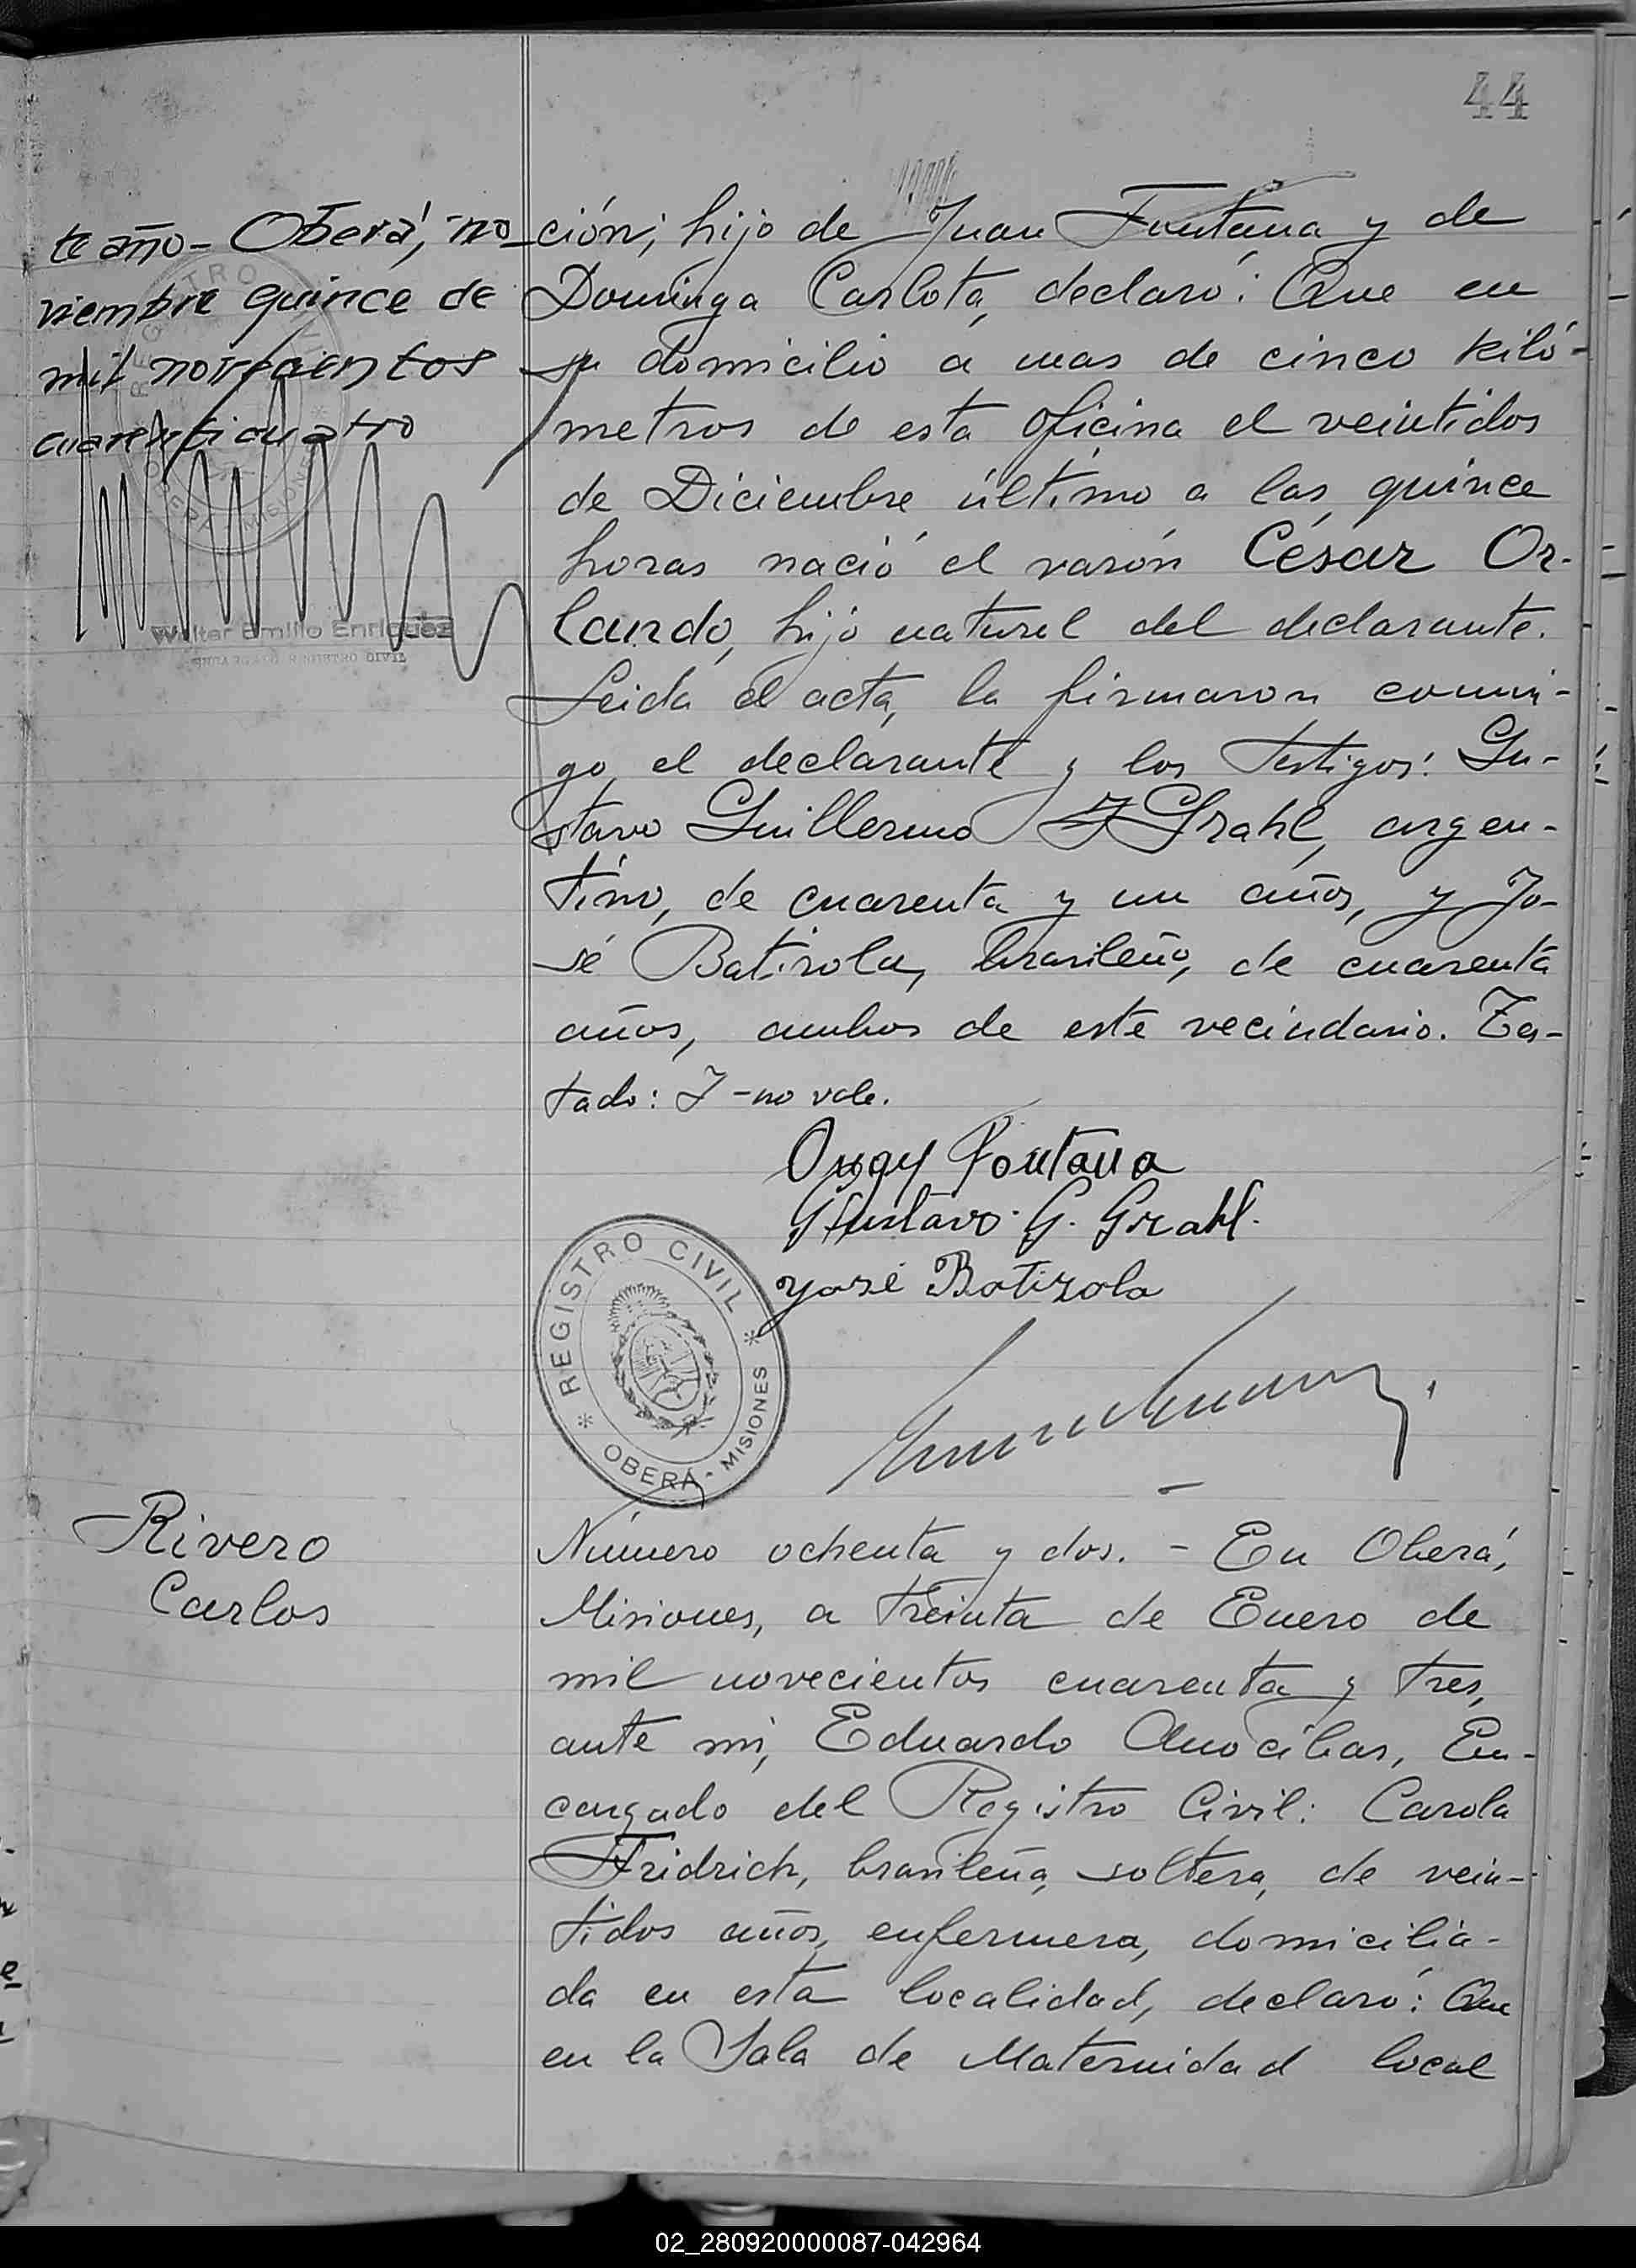 44
te año - Oberá, no-
viembre quince de
mil novecientos
cuarenticuatro
REGISTRO CIVIL
OBERÁ - MISIONES
Walter Emilio Enriquez
ción; hijo de Juan Fontana y de
Dominga Carlota, declaró: Que en
su domicilio a mas de cinco kiló-
metros de esta oficina el veintidos
de Diciembre último a las quince
horas nació el varón César Or-
lando, hijo natural del declarante.
Leida el acta, la firmaron conmi-
go el declarante y los testigos: Gu-
stavo Guillermo F Grahl, argen-
tino, de cuarenta y un años, y Jo-
sé Batirola, brasileño, de cuarenta
años, ambos de este vecindario. Tes-
tado: F - no vale.
Fontana
Gustavo G. Grahl.
José Batirola
REGISTRO CIVIL
OBERÁ - MISIONES
Rivero
Carlos
Número ochenta y dos. - En Oberá,
Misiones, a treinta de Enero de
mil novecientos cuarenta y tres,
ante mi, Eduardo Anocibar, En-
cargado del Registro Civil: Carola
Fridrich, brasileña, soltera, de vein-
tidos años, enfermera, domicilia-
da en esta localidad, declaró: Que
en la Sala de Maternidad local
02_280920000087-042964